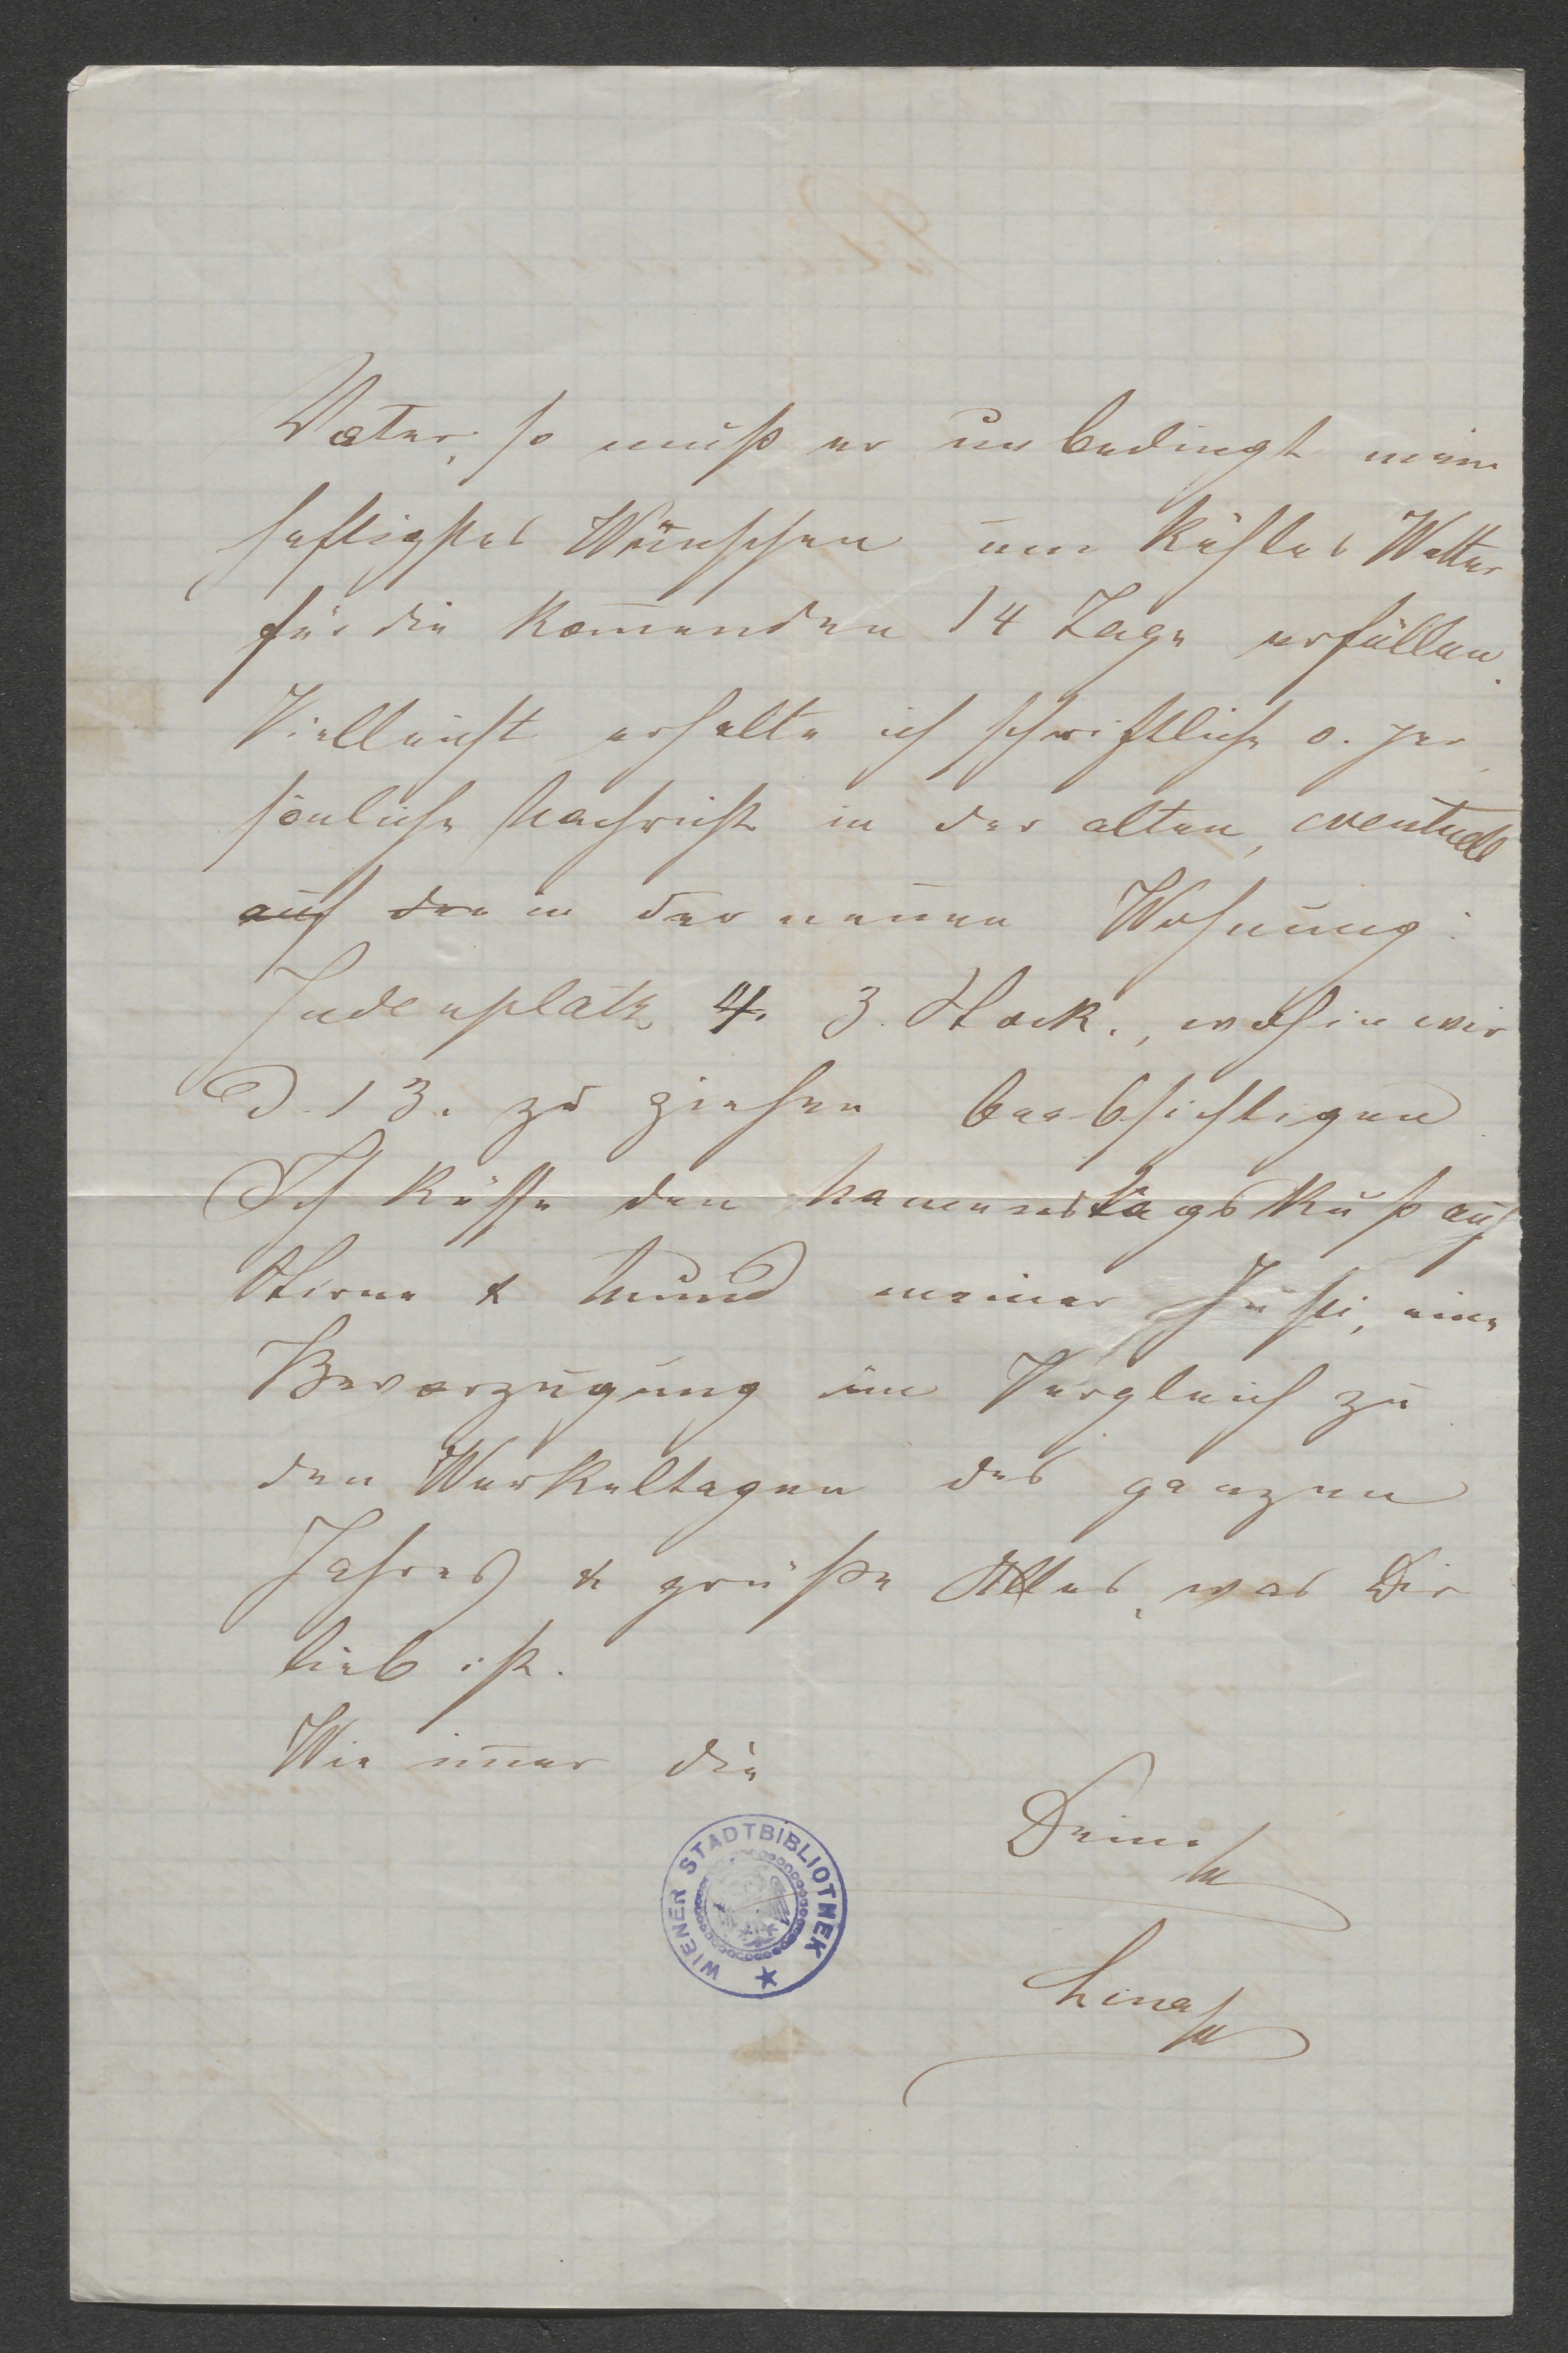 Vater, so muß er unbedingt mein
heftigstes Wünschen um kühles Wetter
für die kom̄enden 14 Tage erfüllen.
Vielleicht erhalte ich schriftliche o. per
sönliche Nachricht in der alten, eventuell
auf den in der neuen Wohnung:
Judenplatz 4. 3. Stock., wohin wir
d. 13. zu ziehen beabsichtigen.
Ich küsse den Namenstagskuß auf
Stirne & Mund meiner Justi, eine
Bevorzugung im Vergleich zu
den Werkeltagen des ganzen
Jahres & grüße Alles, was Dir
lieb ist.
Wie im̄er die
Deine
Lina
WIENER STADTBIBLIOTHEK